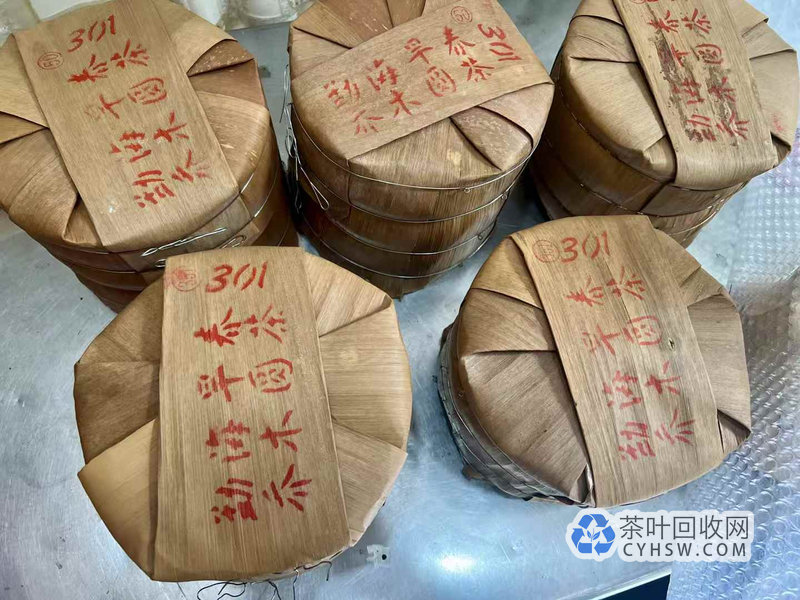 301
勐海早春
乔木圆茶
勐海早春 301
乔木圆茶
勐海早春
乔木圆茶
301
勐海早春
乔木圆茶
301
勐海早春
乔木圆茶
茶叶回收网
CYHSW.COM